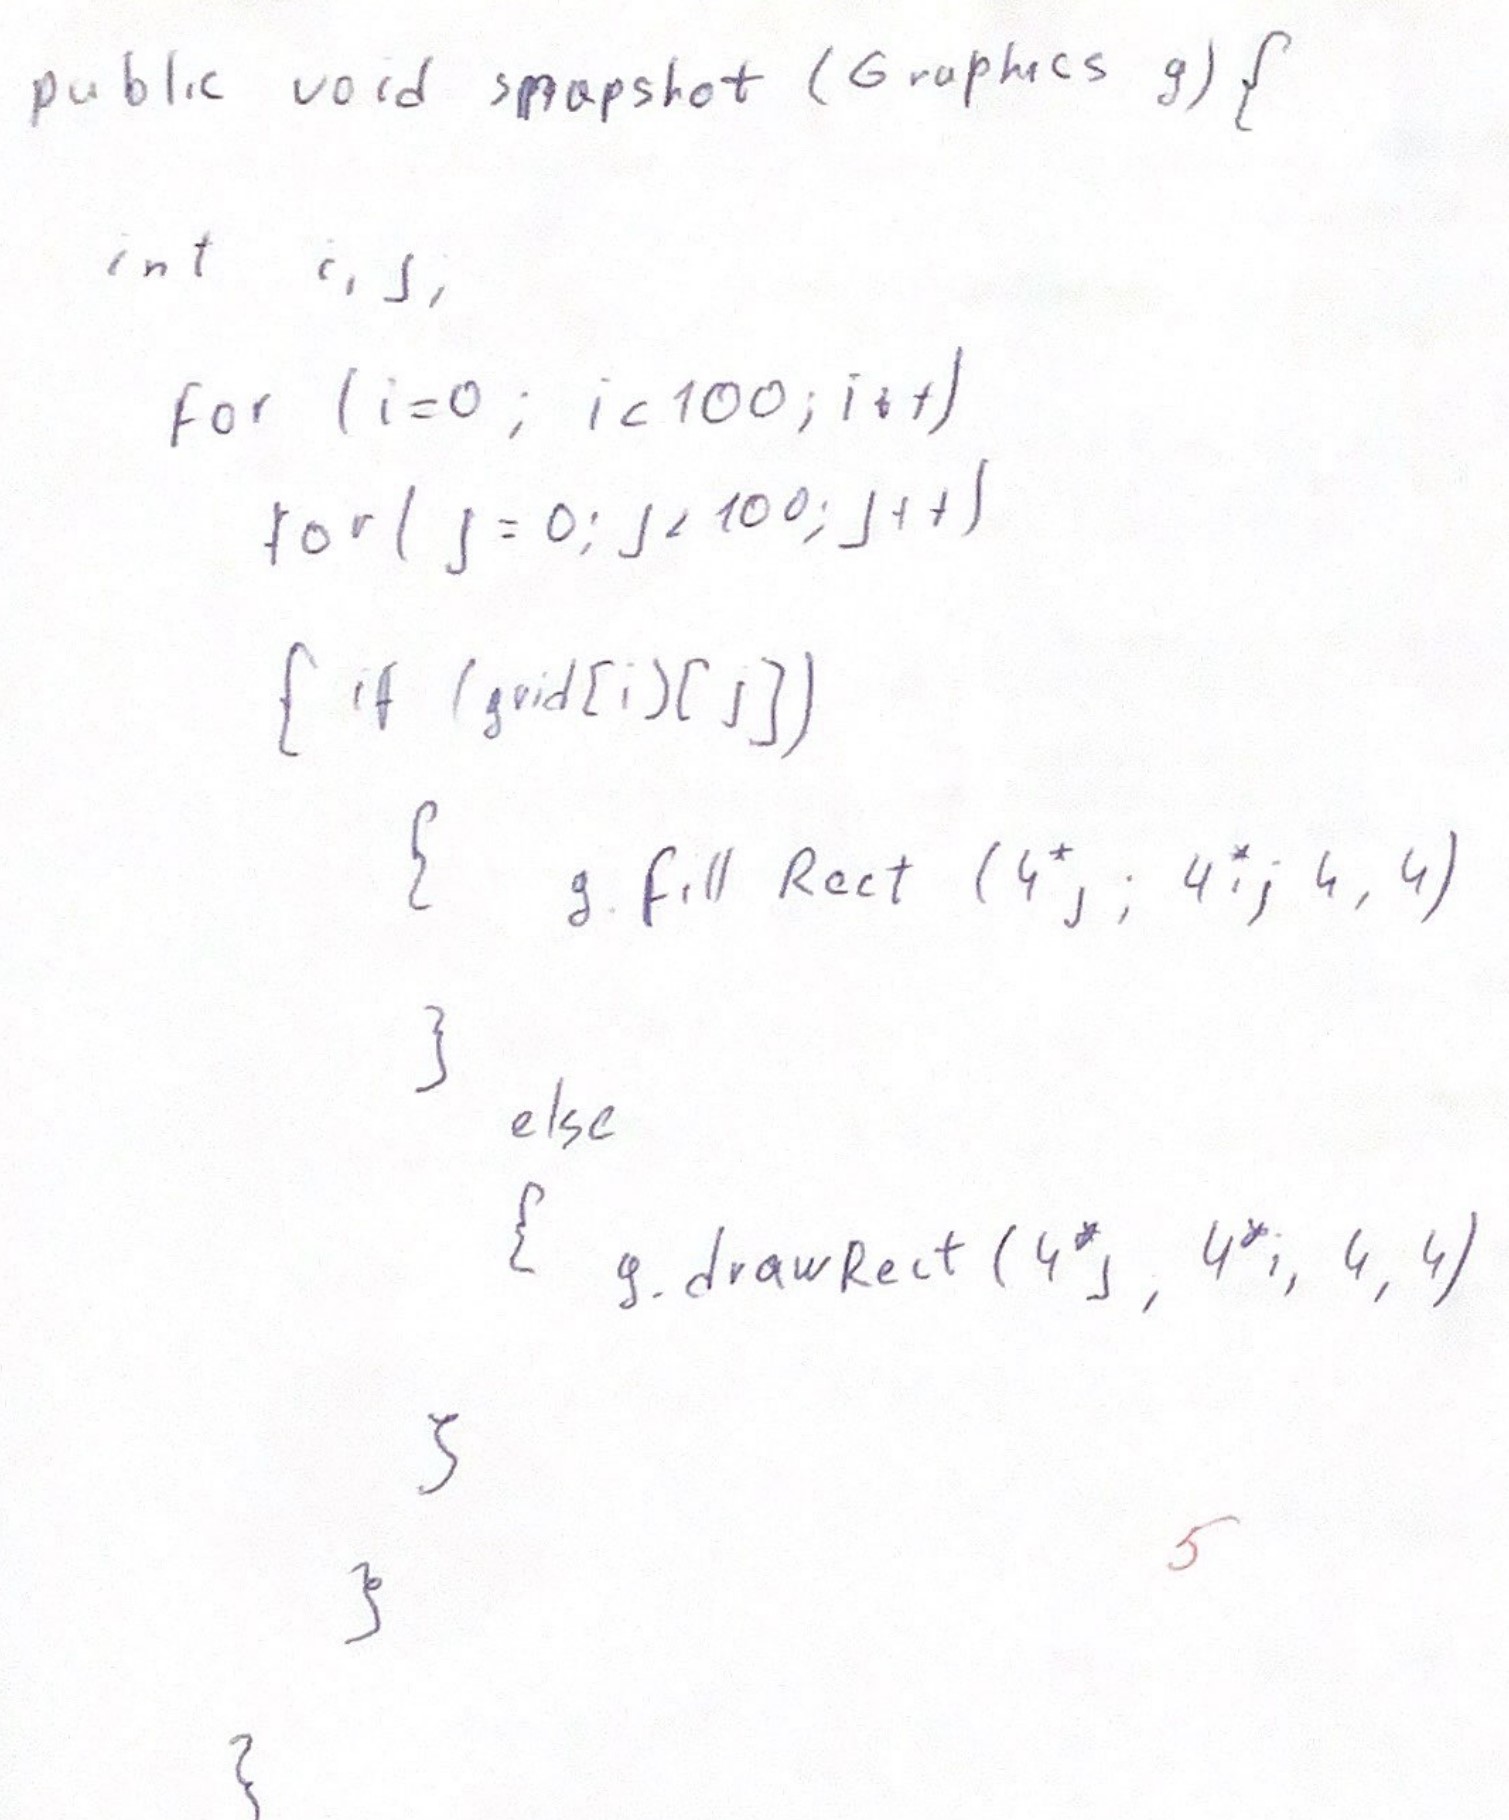 public void snapshot (Graphics g) {
int i, j;
for (i=0; i<100; i++)
for ( j=0; j<100; j++)
{ if (grid[i)[j])
{ g.fill Rect (4*j; 4*i; 4, 4)
}
else
{ g.drawRect (4*j, 4*i, 4, 4)
}
5
}
}